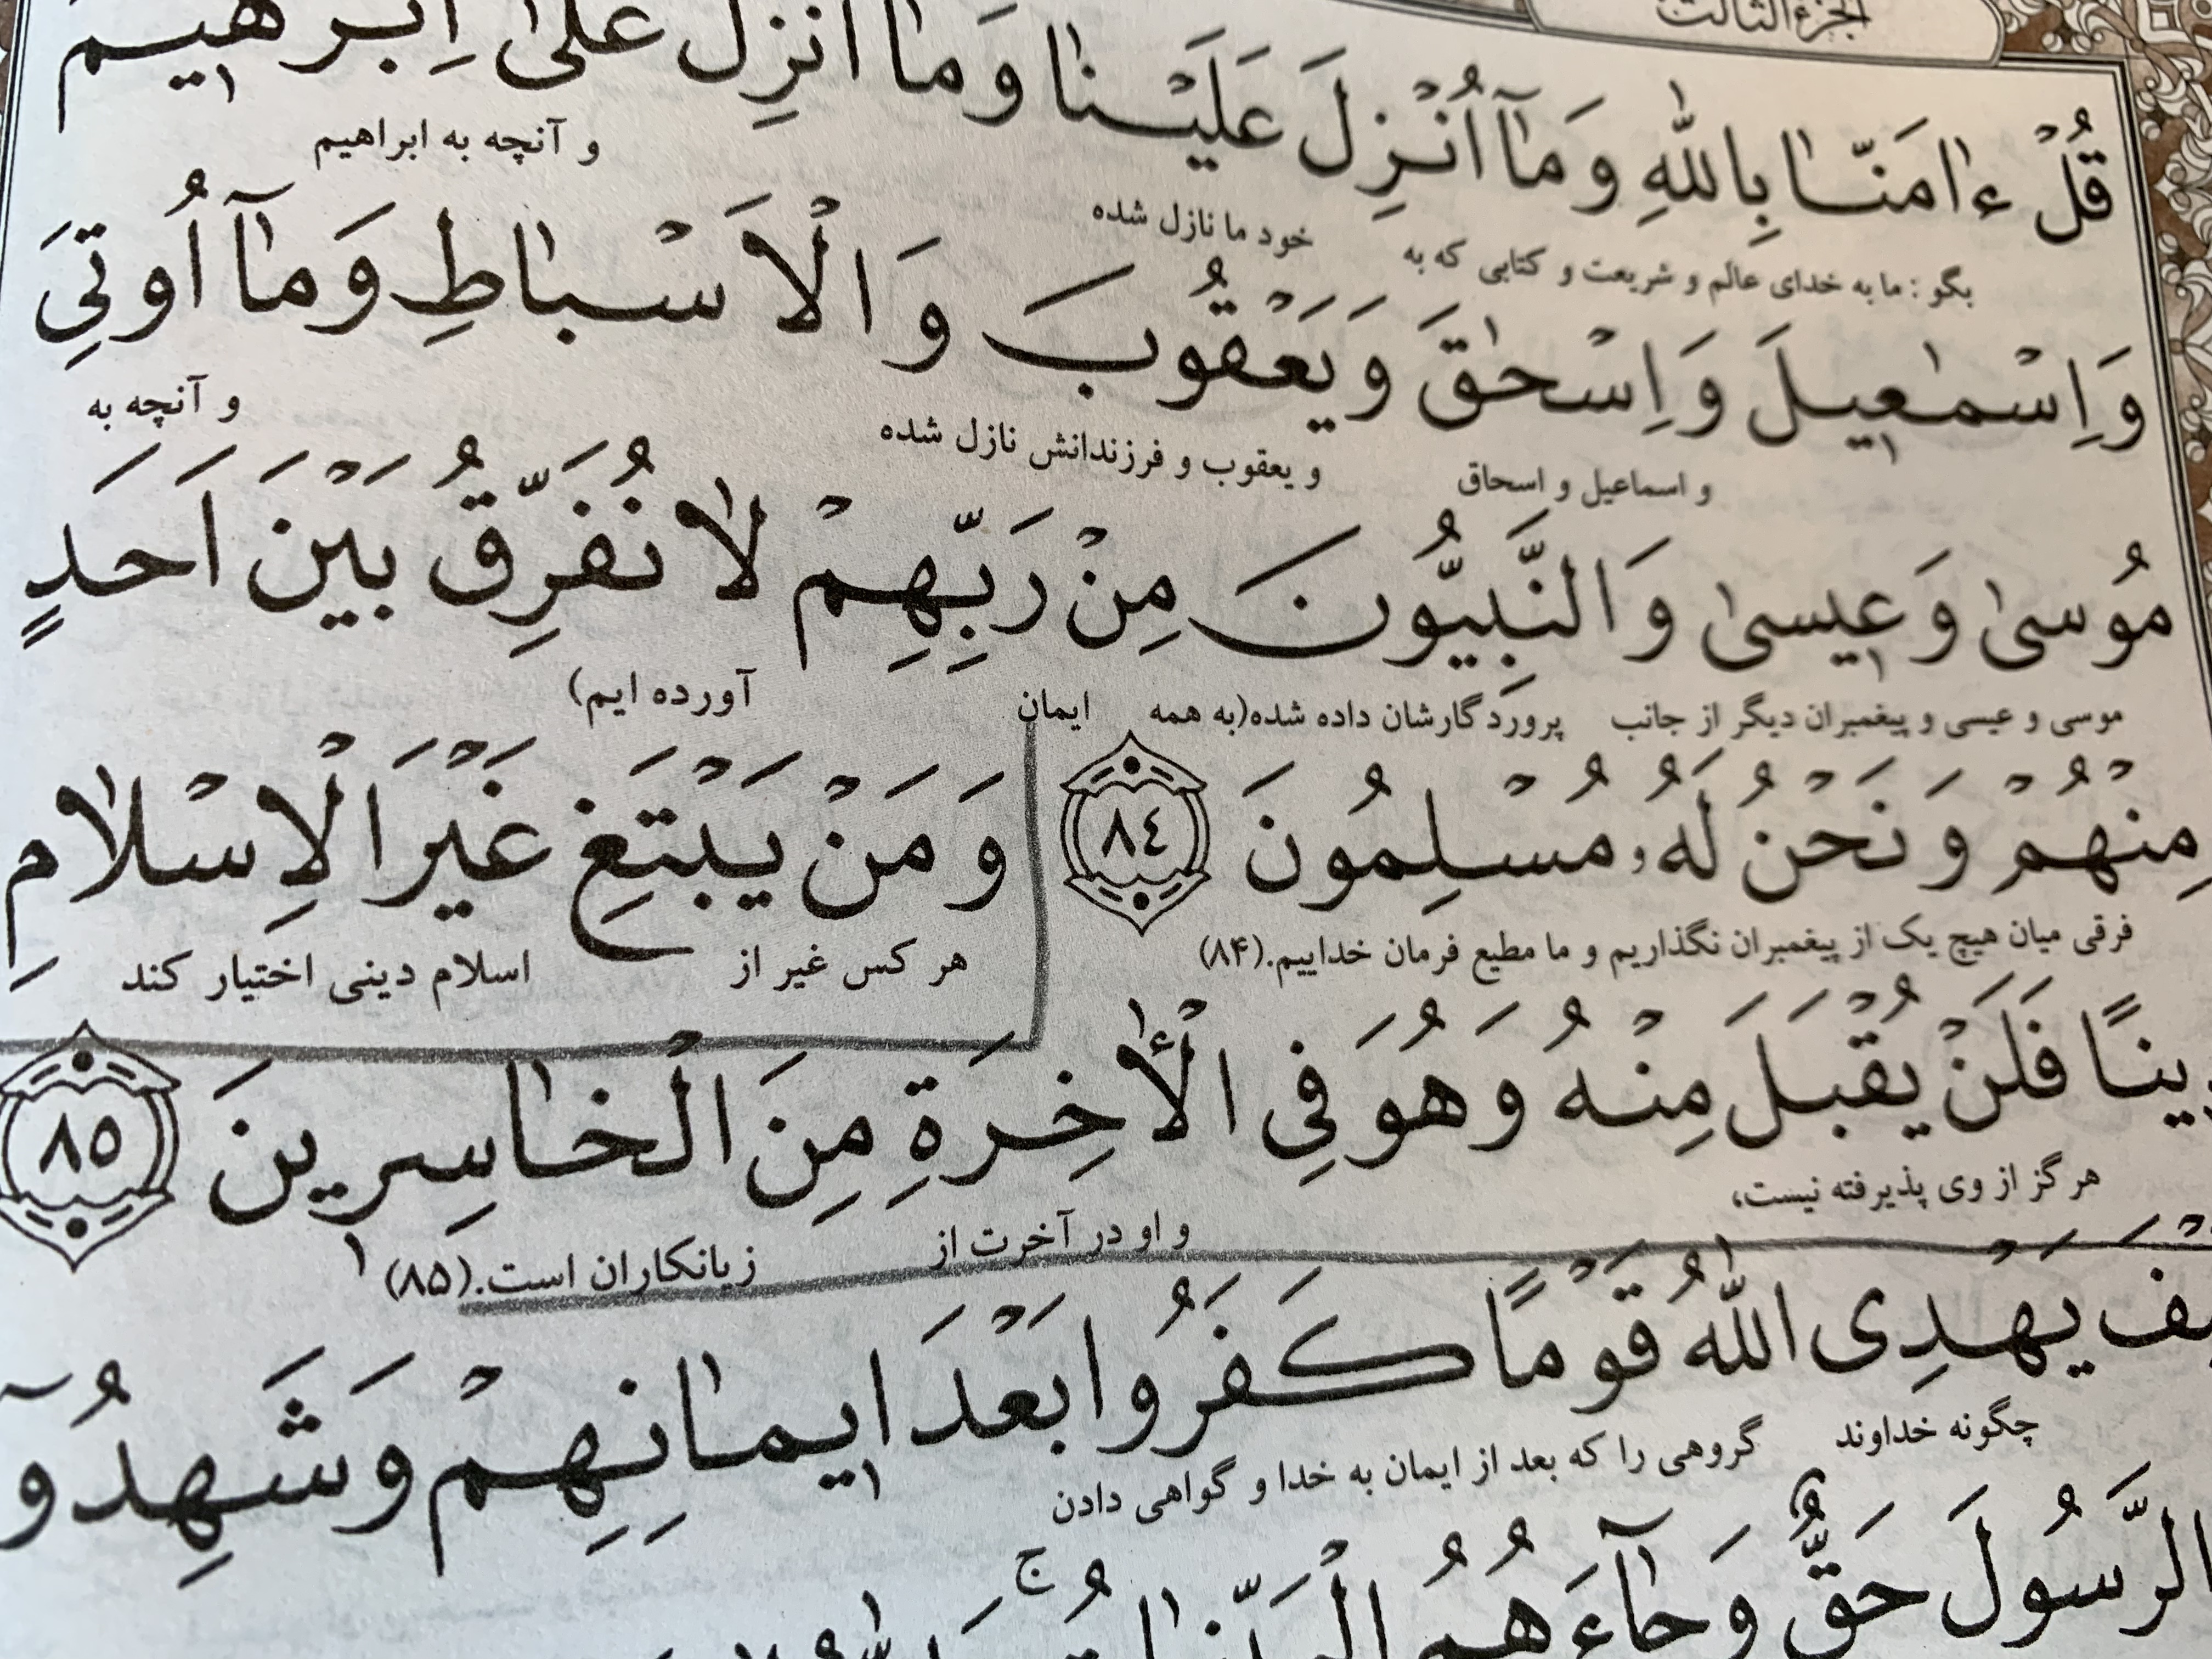 الجزء الثالث
قُلْ ءٰامَنّـٰا بِاللّٰهِ وَمٰآ اُنْزِلَ عَلَيْـنٰا وَمٰآ اُنْزِلَ عَلىٰٓ اِبْرٰهيمَ
بگو : ما به خدای عالم و شریعت و کتابی که به خود ما نازل شده و آنچه به ابراهیم
وَاِسْمٰعيلَ وَاِسْحٰقَ وَيَعْقُوبَ وَالْاَسْبٰاطِ وَمٰآ اُوتِيَ
و اسماعیل و اسحاق و یعقوب و فرزندانش نازل شده و آنچه به
مُوسىٰ وَعيسىٰ وَالنَّبِيُّونَ مِنْ رَبِّهِمْ لٰا نُفَرِّقُ بَيْنَ اَحَدٍ
موسی و عیسی و پیغمبران دیگر از جانب پروردگارشان داده شده(به همه ایمان آورده ایم)
مِنْهُمْ وَنَحْنُ لَهُۥ مُسْلِمُونَ ٨٤ وَمَنْ يَبْتَغِ غَيْرَ الْاِسْلٰامِ
فرقی میان هیچ یک از پیغمبران نگذاریم و ما مطیع فرمان خداییم.(۸۴) هر کس غیر از اسلام دینی اختیار کند
فَلَنْ يُقْبَلَ مِنْهُ وَهُوَ فِي الْأٰخِرَةِ مِنَ الْخٰاسِرينَ ٨٥
هرگز از وی پذیرفته نیست، و او در آخرت از زیانکاران است.(۸۵)
يَهْدِى اللّٰهُ قَوْمًا كَفَرُوا بَعْدَ ايمٰانِهِمْ وَشَهِدُوٓ
چگونه خداوند گروهی را که بعد از ایمان به خدا و گواهی دادن
الرَّسُولَ حَقٌّ وَجٰآءَهُمُ